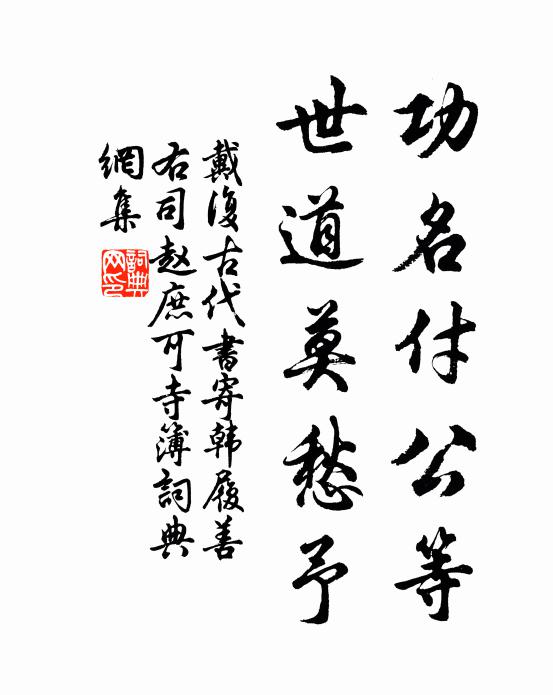 功名付公等
世道莫愁予
戴復古代書寄韩履善
右司赵庶可寺簿詞典
網集
詞典網印